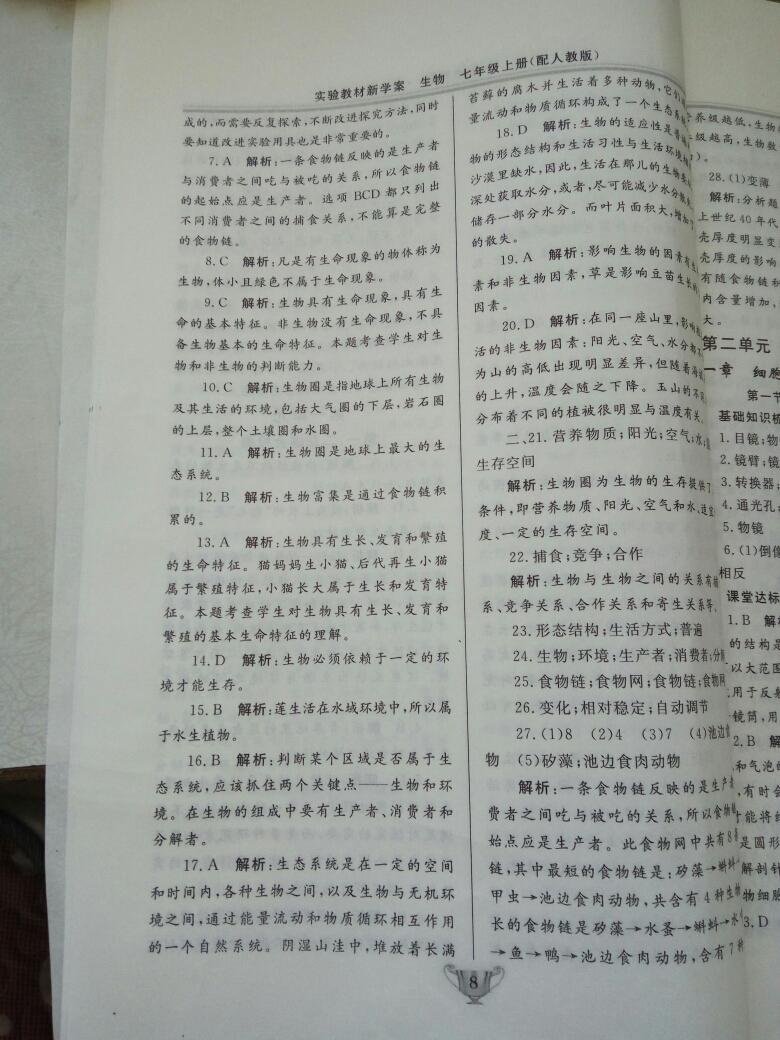 实验教材新学案 生物 七年级上册(配人教版)
成的,而需要反复探索,不断改进探究方法,同时
要知道改进实验用具也是非常重要的。
7.A 解析:一条食物链反映的是生产者
与消费者之间吃与被吃的关系,所以食物链
的起始点应是生产者。选项BCD都只列出
不同消费者之间的捕食关系,不能算是完整
的食物链。
8.C 解析:凡是有生命现象的物体称为
生物,体小且绿色不属于生命现象。
9.C 解析:生物具有生命现象,具有生
命的基本特征。非生物没有生命现象,不具
备生物基本的生命特征。本题考查学生对生
物和非生物的判断能力。
10.C 解析:生物圈是指地球上所有生物
及其生活的环境,包括大气圈的下层,岩石圈
的上层,整个土壤圈和水圈。
11.A 解析:生物圈是地球上最大的生
态系统。
12.B 解析:生物富集是通过食物链积
累的。
13.A 解析:生物具有生长、发育和繁殖
的生命特征。猫妈妈生小猫、后代再生小猫
属于繁殖特征,小猫长大属于生长和发育特
征。本题考查学生对生物具有生长、发育和
繁殖的基本生命特征的理解。
14.D 解析:生物必须依赖于一定的环
境才能生存。
15.B 解析:莲生活在水域环境中,所以属
于水生植物。
16.B 解析:判断某个区域是否属于生
态系统,应该抓住两个关键点——生物和环
境。在生物的组成中要有生产者、消费者和
分解者。
17.A 解析:生态系统是在一定的空间
和时间内,各种生物之间,以及生物与无机环
境之间,通过能量流动和物质循环相互作用
的一个自然系统。阴湿山洼中,堆放着长满
苔藓的腐木并生活着多种动物,它们
量流动和物质循环构成了一个生态系
18.D 解析:生物的适应性是
物的形态结构和生活习性与生活环境
沙漠里缺水,因此,生活在那儿的生物
深处获取水分,或者,尽可能减少水分
储存一部分水分。而叶片面积大,增加了
的散失。
19.A 解析:影响生物的因素有生
素和非生物因素,草是影响豆苗生长的
因素。
20.D 解析:在同一座山里,影响
活的非生物因素:阳光、空气、水分
为山的高低出现明显差异,但随着海
的上升,温度会随之下降。玉山的不同
分布着不同的植被很明显与温度有关。
二、21.营养物质;阳光;空气;水;
生存空间
解析:生物圈为生物的生存提供了
条件,即营养物质、阳光、空气和水、适宜
度、一定的生存空间。
22.捕食;竞争;合作
解析:生物与生物之间的关系有捕
系、竞争关系、合作关系和寄生关系等。
23.形态结构;生活方式;普遍
24.生物;环境;生产者;消费者;分
25.食物链;食物网;食物链;食物网
26.变化;相对稳定;自动调节
27.(1)8 (2)4 (3)7 (4)池边食
物 (5)矽藻;池边食肉动物
解析:一条食物链反映的是生产者
费者之间吃与被吃的关系,所以食物
始点应是生产者。此食物网中共有8条
链,其中最短的食物链是:矽藻→蝌蚪→
甲虫→池边食肉动物,共含有4种生物
长的食物链是矽藻→水蚤→蝌蚪→水
→鱼→鸭→池边食肉动物,含有7种
养级越低,生物
级越高,生物数
28.(1)变薄
解析:分析题
上世纪40年代
壳厚度明显变
壳厚度的影响
有随食物链和
内含量增加,
大。
第二单元
一章 细胞
第一节
基础知识梳
1.目镜;物
2.镜臂;镜
3.转换器;
4.通光孔;
5.物镜
6.(1)倒像
相反
课堂达标
1.B 解析
的结构是
以大范围
用于反射
镜筒,用
2.B 解
和气泡的
,有时会
才能将细
是圆形
解剖针
物细胞
3.D
8